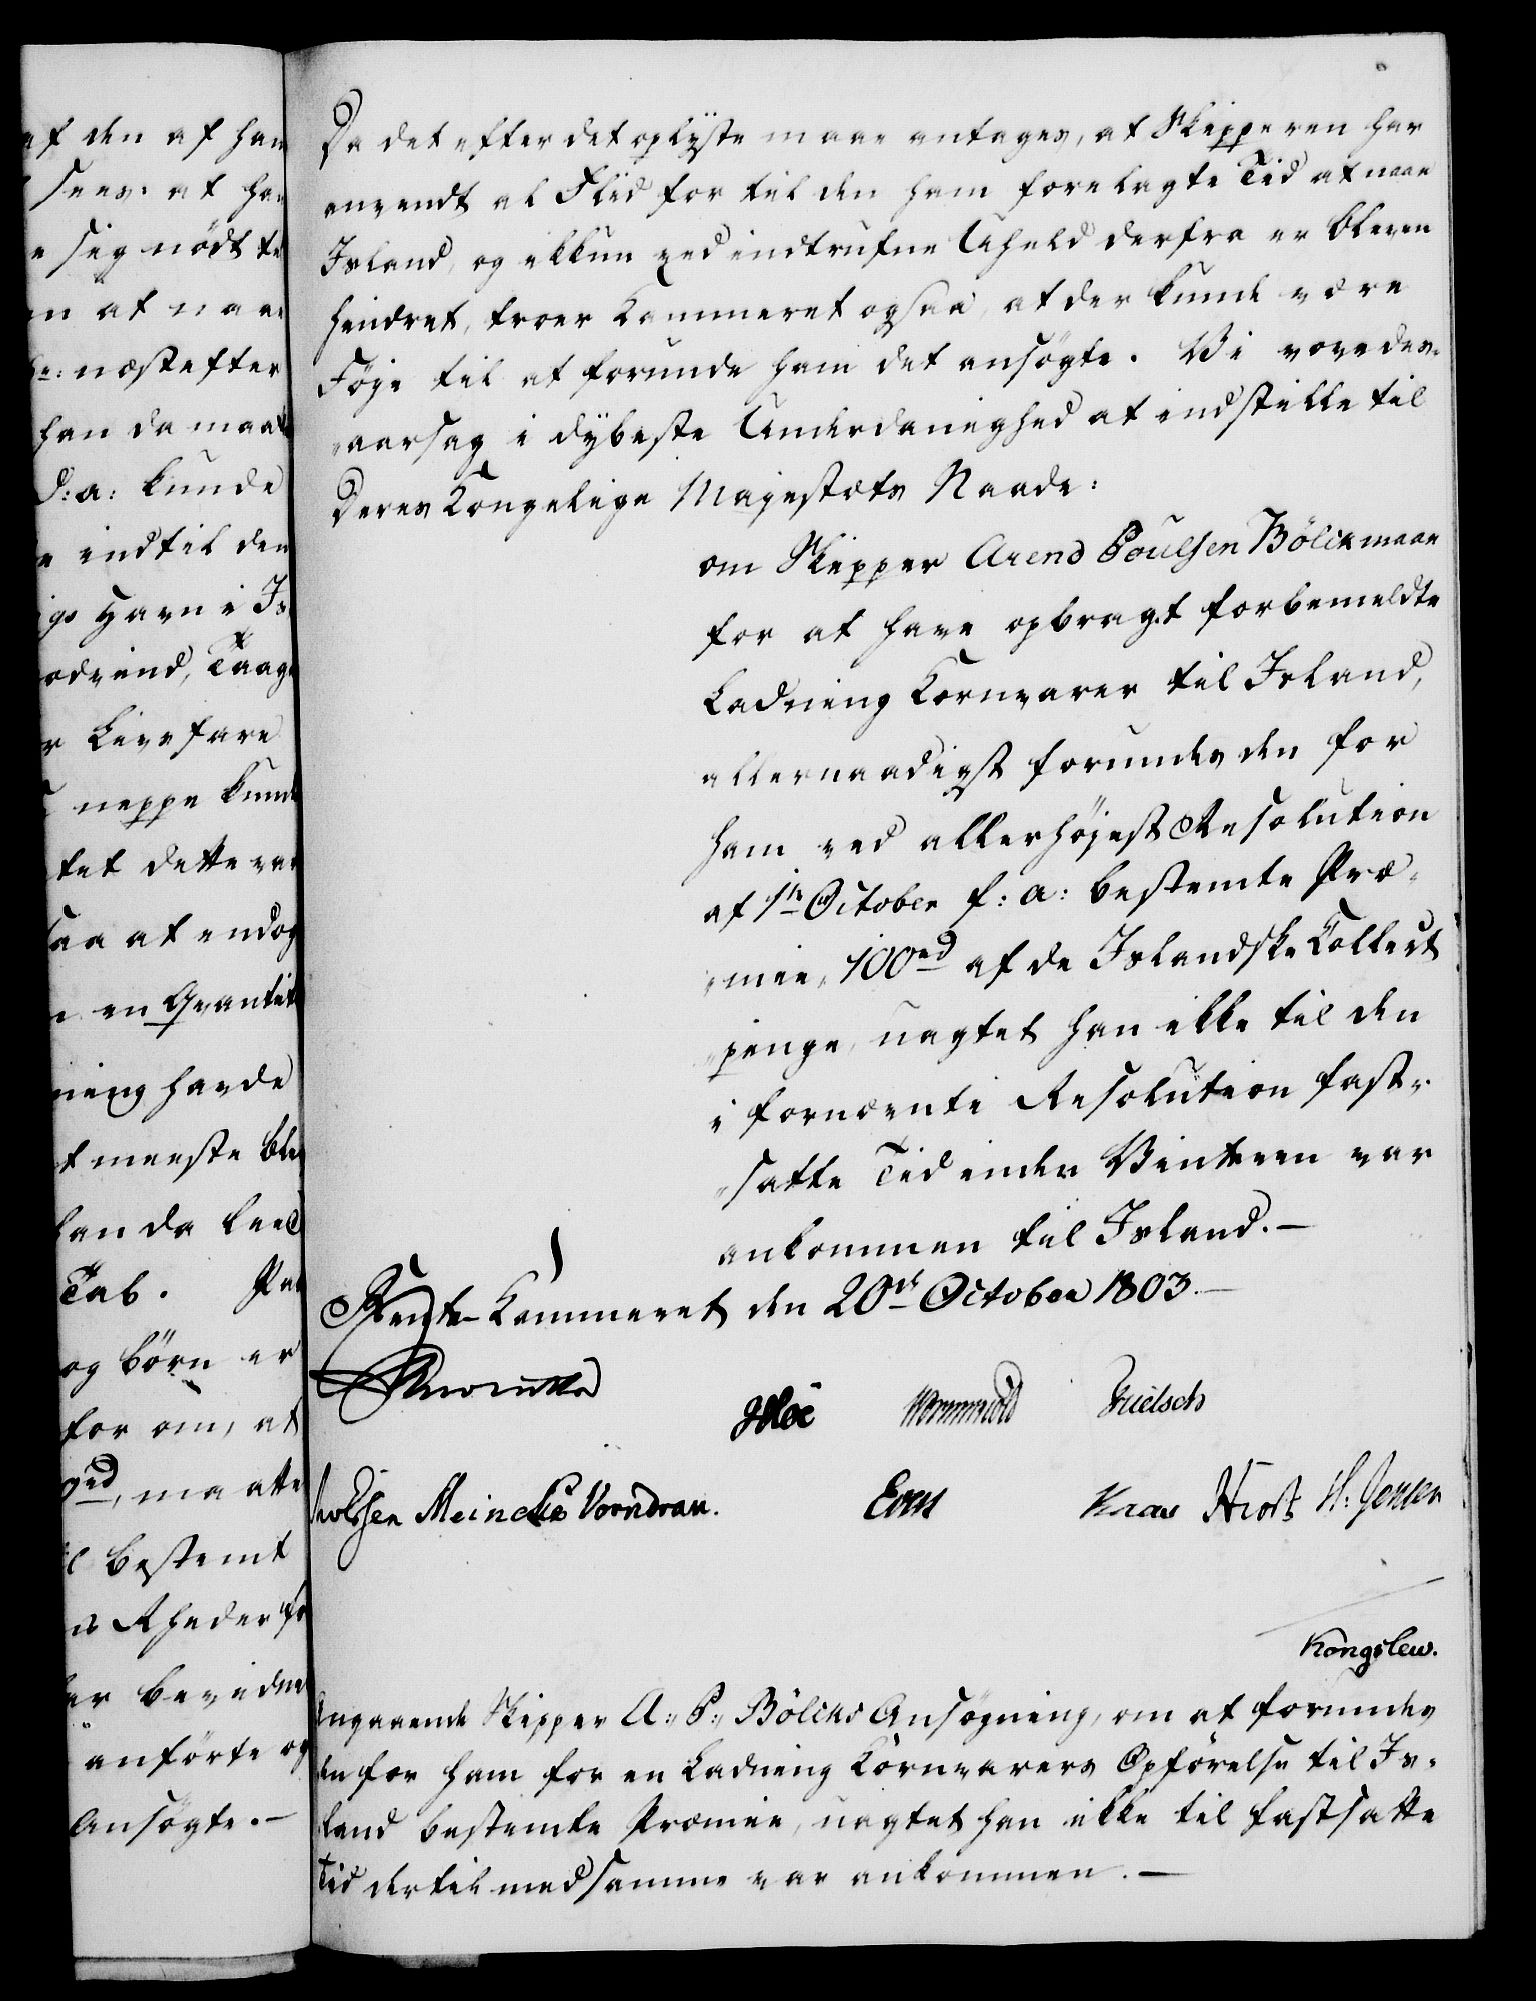 af den af ham
sees at han
sig nödt til
at naae
næstefter
han da maatte
d: a: kunde
indtil den
Havn i Is
odvind, Taage
Livsfare
neppe kunde
tet dette var
saa at endog
en Qvantitet
ning havde
t meeste ble
han da leed
Tab.
og börn er
for om, at
maatte
bestemt
Rheder
bevidne
anförte og
Ansögte.-
Da det efter det oplyste maae antages, at Skipperen har
anvendt al Flid for til den ham forelagte Tid at naae
Island, og ikkun ved indtrufne Uheld derfra er bleven
hindret, troer Kammeret ogsaa, at der kunde være
Föje til at forunde ham det ansögte. Vi vove des-
aarsag i dybeste Underdanighed at indstille til
Deres Kongelige Majestæts Naade:
om Skipper Arend Poulsen Bölck maae
for at have opbragt forbemeldte
Ladning Kornvarer til Island,
allernaadigst forundes den for
ham ved allerhöjest Resolution
af 1te October f: a: bestemte Præ-
mie, 100rd af de Islandske Collect
penge, uagtet han ikke til den
i fornævnte Resolution fast-
satte Tid inden Vinteren var
ankommen til Island.-
Rente-Kammeret den 20de October 1803.-
Wormskiold
Meincke Vorndran. Knar H: Jensen
Kongslew.
Angaaende Skipper A: P: Bölcks Ansögning, om at forundes
den for ham for en Ladning Kornvarers Opförelse til Is-
land bestemte Præmie, uagtet han ikke til fastsatte
Tid dertil med samme var ankommen.-